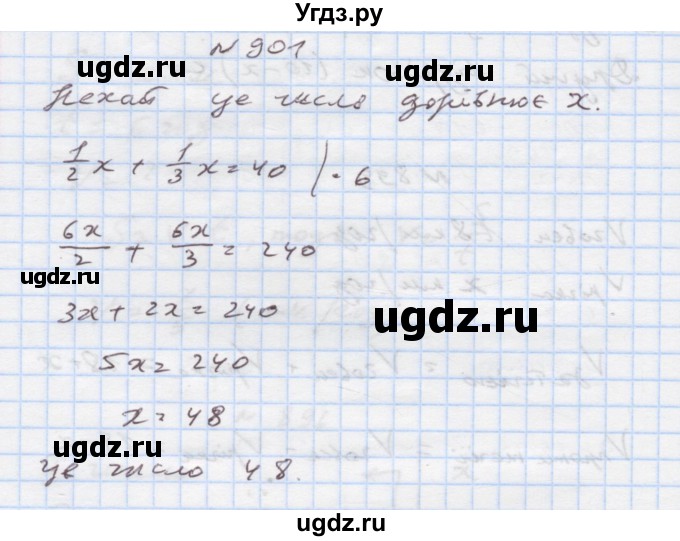 Угдз.ру
№ 901
ugdz.ru ugdz.ru
Нехай це число дорівнює x.
1/2 x + 1/3 x = 40 | · 6
6x/2 + 6x/3 = 240
ugdz.ru
3x + 2x = 240
ugdz.ru
5x = 240
x = 48
ugdz.ru
Це число 48.
ugdz.ru
ugdz.ru